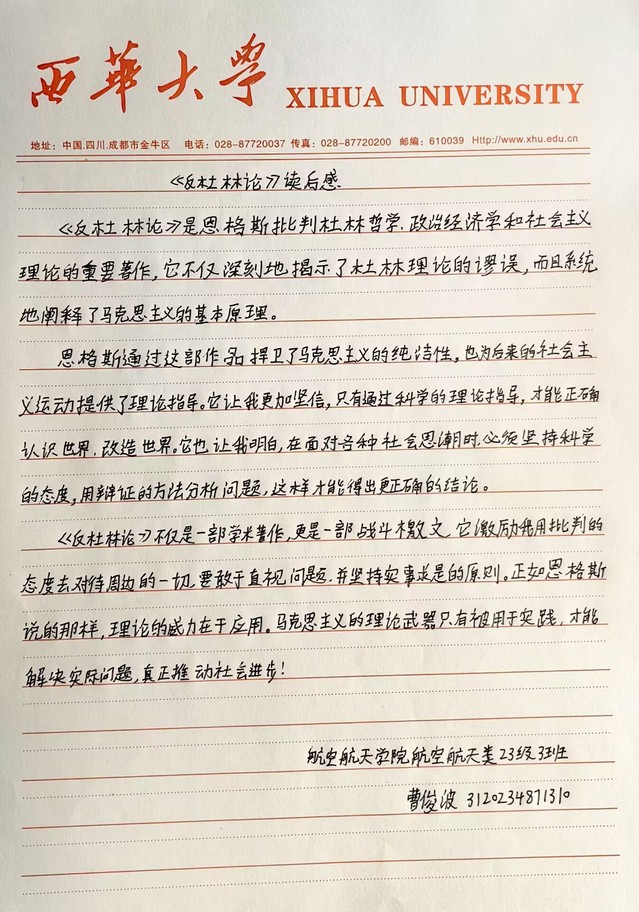 西華大學 XIHUA UNIVERSITY
地址：中国.四川.成都市金牛区 电话：028-87720037 传真：028-87720200 邮编：610039 Http://www.xhu.edu.cn
《反杜林论》读后感
《反杜林论》是恩格斯批判杜林哲学、政治经济学和社会主义
理论的重要著作，它不仅深刻地揭示了杜林理论的谬误，而且系统
地阐释了马克思主义的基本原理。
恩格斯通过这部作品捍卫了马克思主义的纯洁性，也为后来的社会主
义运动提供了理论指导。它让我更加坚信，只有通过科学的理论指导，才能正确
认识世界、改造世界。它也让我明白，在面对各种社会思潮时，必须坚持科学
的态度，用辩证的方法分析问题，这样才能得出更正确的结论。
《反杜林论》不仅是一部学术著作，更是一部战斗檄文，它激励我用批判的
态度去对待周边的一切，要敢于直视问题，并坚持实事求是的原则。正如恩格斯
说的那样，理论的威力在于应用。马克思主义的理论武器只有被用于实践，才能
解决实际问题，真正推动社会进步！
航空航天学院航空航天类23级3班
曹俊波 3120234871310